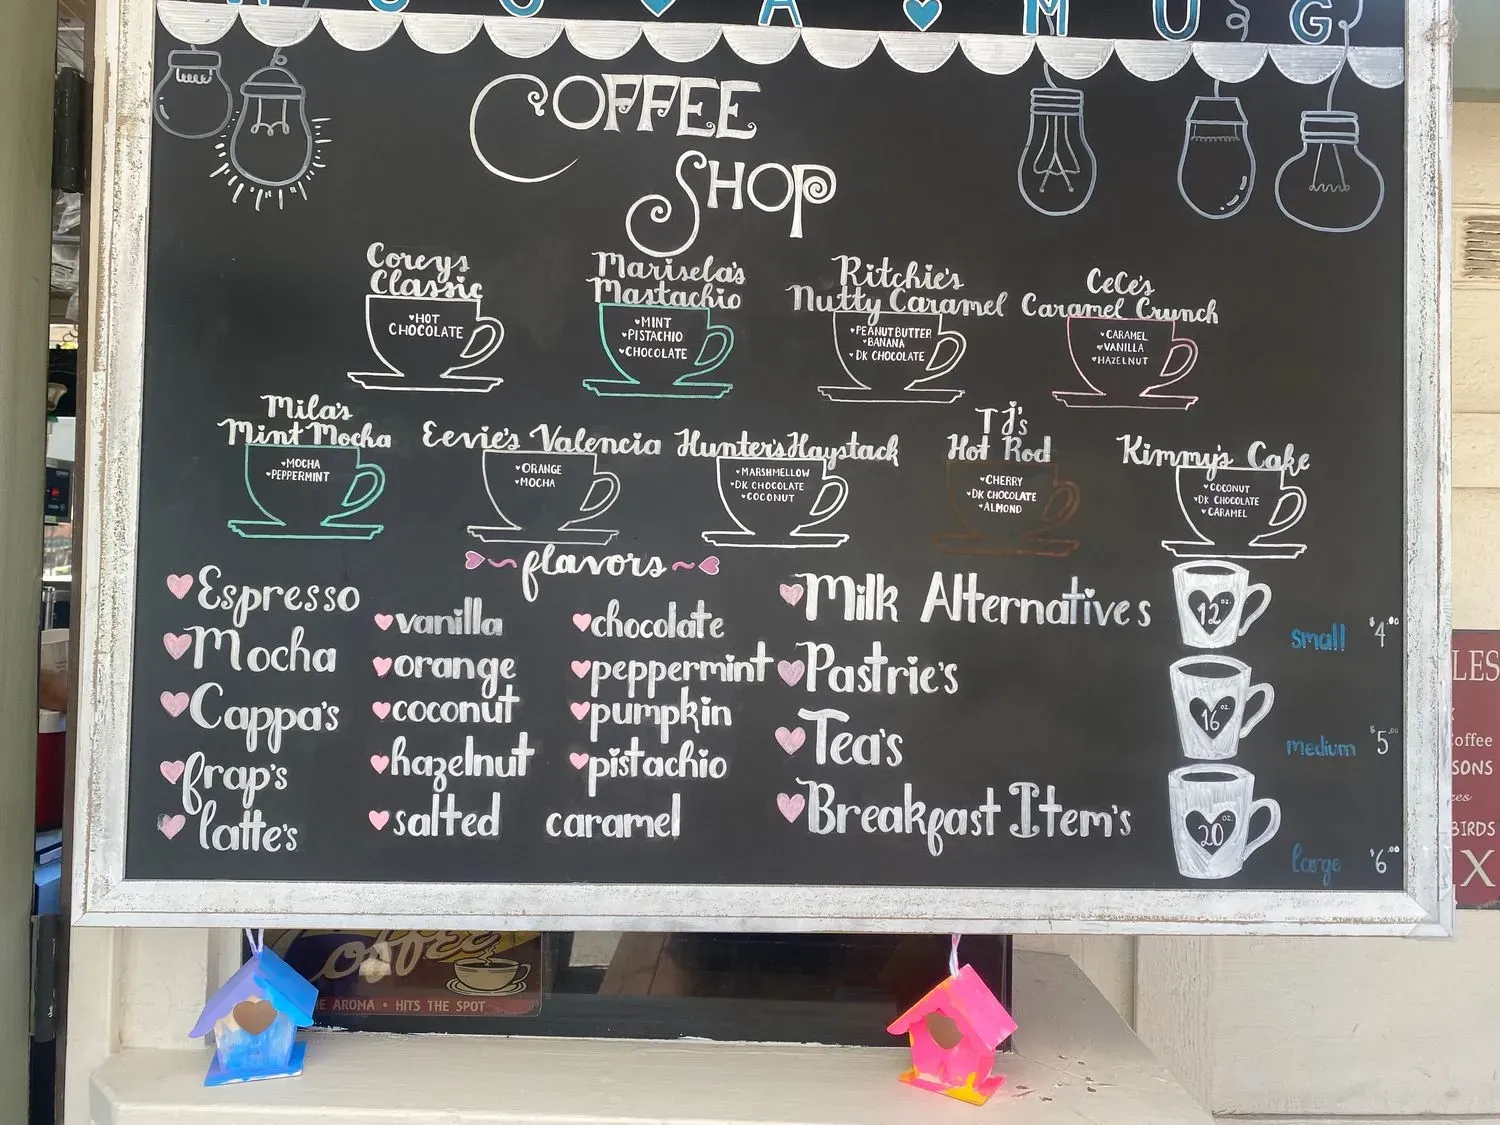 A MUG
COFFEE
SHOP
Coreys
Classic
♥HOT
CHOCOLATE
Marisela's
Mastachio
♥MINT
♥PISTACHIO
♥CHOCOLATE
Ritchie's
Nutty Caramel
♥PEANUT BUTTER
♥BANANA
♥DK CHOCOLATE
CeCe's
Caramel Crunch
♥CARAMEL
♥VANILLA
♥HAZELNUT
Mila's
Mint Mocha
♥MOCHA
♥PEPPERMINT
Eevie's Valencia
♥ORANGE
♥MOCHA
Hunter's Haystack
♥MARSHMELLOW
♥DK CHOCOLATE
♥COCONUT
TJ's
Hot Rod
♥CHERRY
♥DK CHOCOLATE
♥ALMOND
Kimmy's Cake
♥COCONUT
♥DK CHOCOLATE
♥CARAMEL
♥Espresso
♥Mocha
♥Cappa's
♥frap's
♥latte's
flavors
♥vanilla
♥orange
♥coconut
♥hazelnut
♥salted caramel
♥chocolate
♥peppermint
♥pumpkin
♥pistachio
♥Milk Alternatives
♥Pastrie's
♥Tea's
♥Breakfast Item's
12 oz.
small $4.00
16 oz.
medium $5.00
20 oz.
large $6.00
Coffee
AROMA • HITS THE SPOT
LES
offee
SONS
BIRDS
X